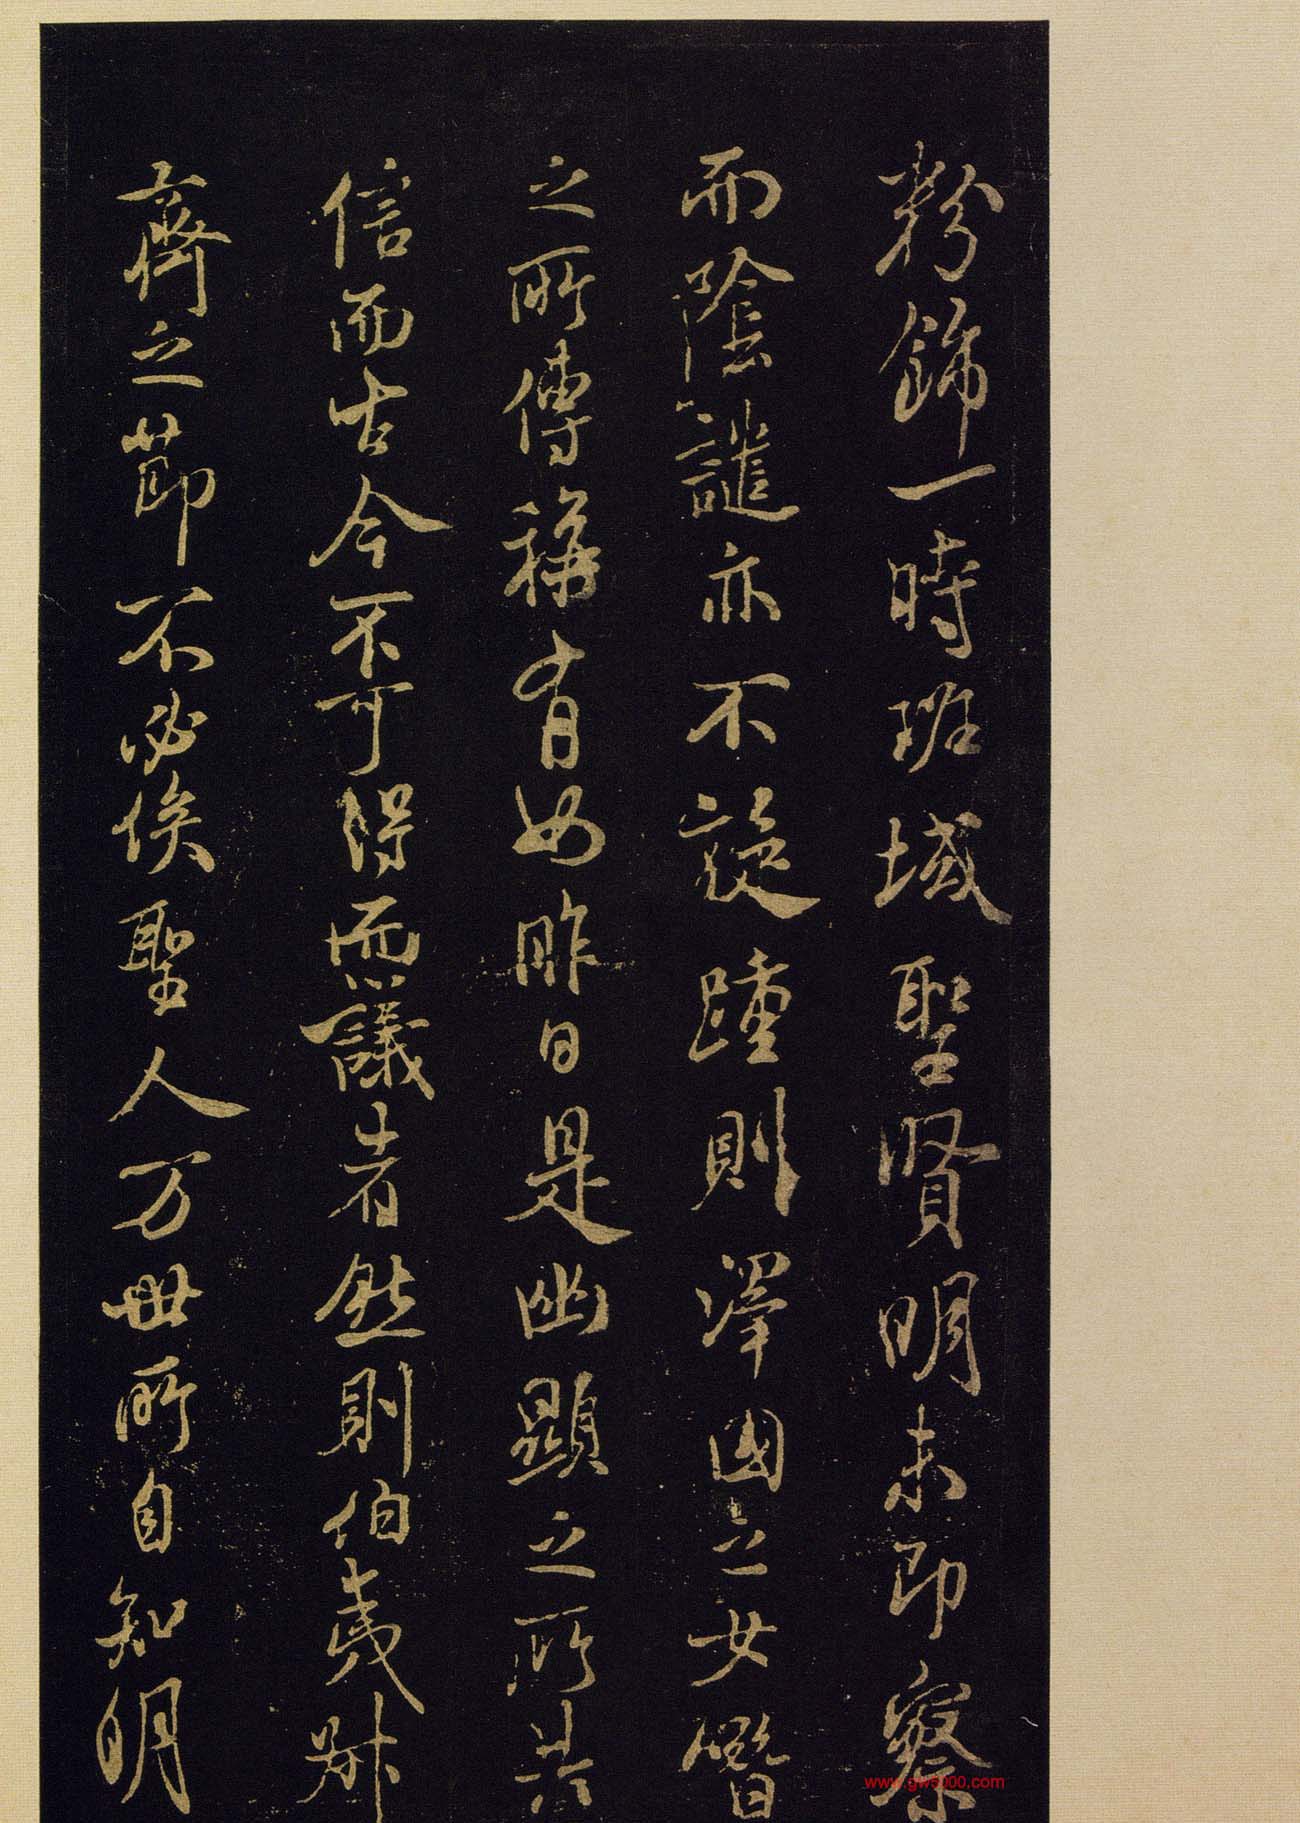 粉飾一時班域聖賢明未即察
而陰譴亦不旋踵則澤國之女僭
之所傳稱有如昨日是幽顯之所共
信而古今不可得而議者然則伯夷叔
齊之節不必俟聖人万世所自知明
www.gw5000.com